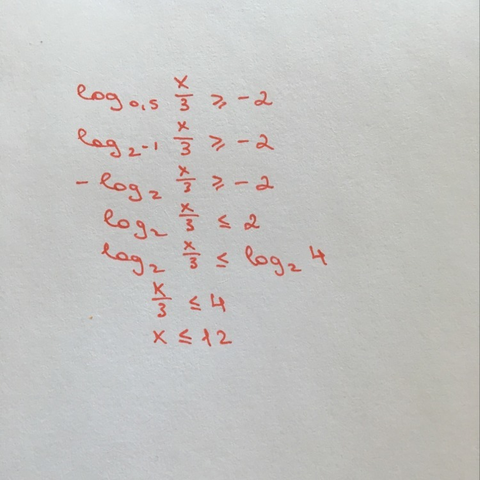 log₀,₅ x/3 ⩾ -2
log₂₋₁ x/3 ⩾ -2
- log₂ x/3 ⩾ -2
log₂ x/3 ≤ 2
log₂ x/3 ≤ log₂ 4
x/3 ≤ 4
x ≤ 12